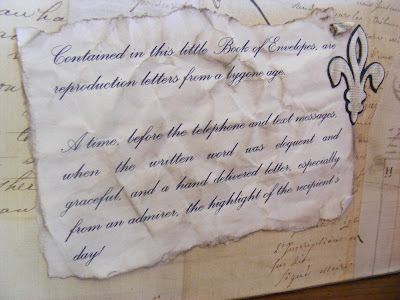 Contained in this little Book of Envelopes, are
reproduction letters from a bygone age.
A time, before the telephone and text messages,
when the written word was eloquent and
graceful, and a hand delivered letter, especially
from an admirer, the highlight of the recipient's
day!